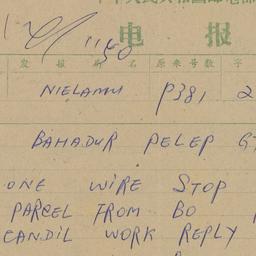 11 50
电 报
发 报 局 名 原 来 号 数 字
NIELAMU P381 2
BAHADUR PELEP
ONE WIRE STOP
PARCEL FROM BO
CANDIL WORK REPLY